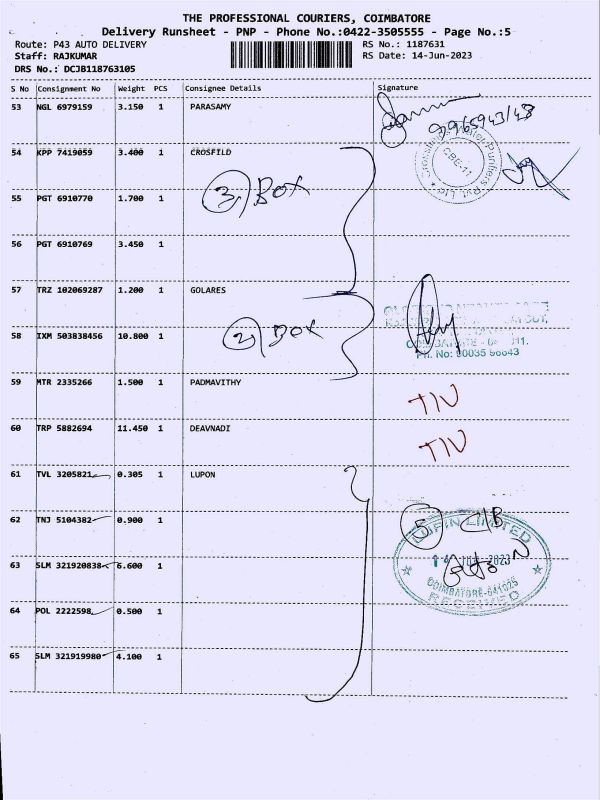 THE PROFESSIONAL COURIERS, COIMBATORE
Delivery Runsheet - PNP - Phone No.:0422-3505555 - Page No.:5
Route: P43 AUTO DELIVERY RS No.: 1187631
Staff: RAJKUMAR RS Date: 14-Jun-2023
DRS No.: DCJB118763105
S No Consignment No Weight PCS Consignee Details Signature
53 NGL 6979159 3.150 1 PARASAMY
54 KPP 7419059 3.400 1 CROSFILD
CBE-11
3 BOX
55 PGT 6910770 1.700 1
56 PGT 6910769 3.450 1
57 TRZ 102069287 1.200 1 GOLARES
2 BOX
58 IXM 503838456 10.800 1
59 MTR 2335266 1.500 1 PADMAVITHY
60 TRP 5882694 11.450 1 DEAVNADI
61 TVL 3205821 0.305 1 LUPON
62 TNJ 5104382 0.900 1
5 C/B
LUPIN LIMITED
63 SLM 321920838 6.600 1
COIMBATORE-641025
RECEIVED
64 POL 2222598 0.500 1
65 SLM 321919980 4.100 1